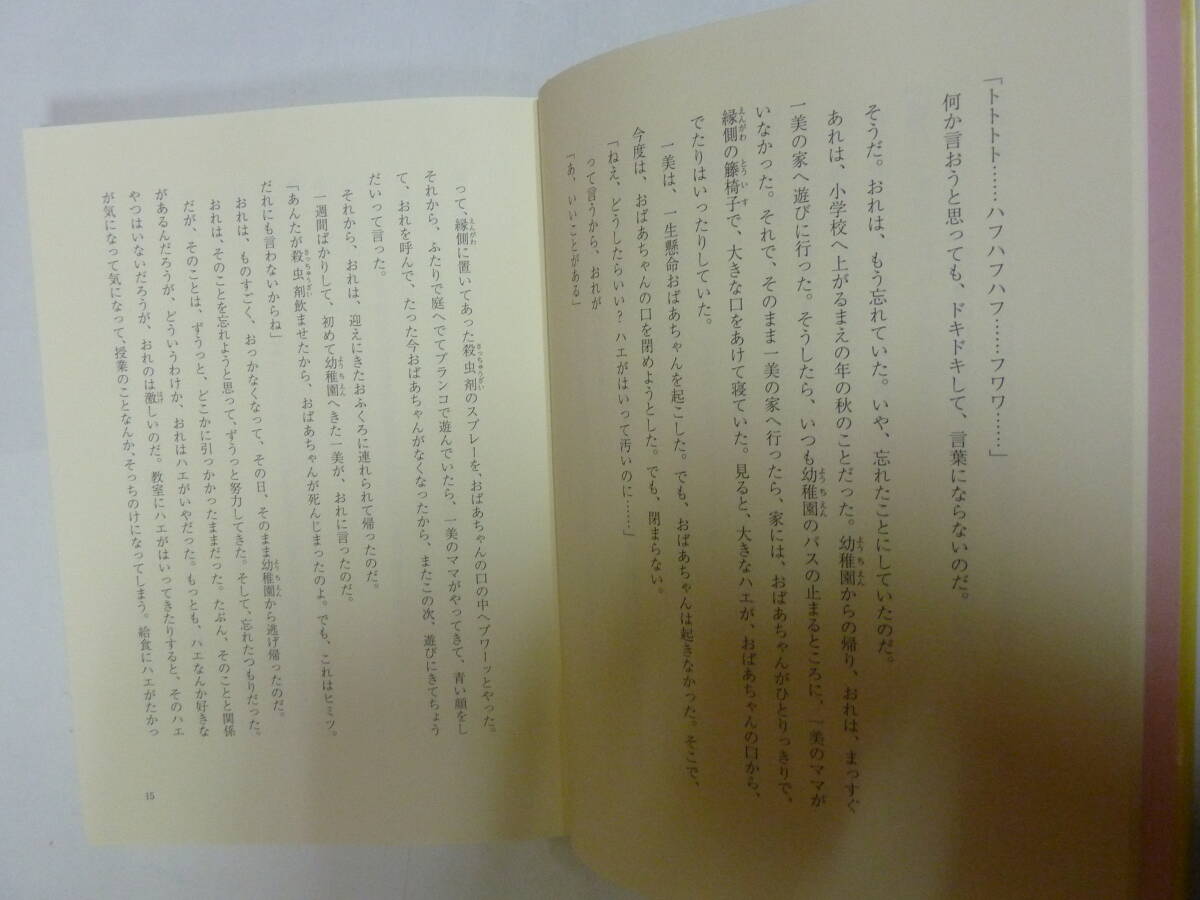 「トトトト……ハフハフハフ……フワワ……」
何か言おうと思っても、ドキドキして、言葉にならないのだ。
そうだ。おれは、もう忘れていた。いや、忘れたことにしていたのだ。
あれは、小学校へ上がるまえの年の秋のことだった。幼稚園からの帰り、おれは、まっすぐ
一美の家へ遊びに行った。そうしたら、いつも幼稚園のバスの止まるところに、一美のママが
いなかった。それで、そのまま一美の家へ行ったら、家には、おばあちゃんがひとりっきりで、
縁側の籐椅子で、大きな口をあけて寝ていた。見ると、大きなハエが、おばあちゃんの口から、
でたりはいったりしていた。
一美は、一生懸命おばあちゃんを起こした。でも、おばあちゃんは起きなかった。そこで、
今度は、おばあちゃんの口を閉めようとした。でも、閉まらない。
「ねえ、どうしたらいい？ハエがはいって汚いのに……」
って言うから、おれが
「あ、いいことがある」
って、縁側に置いてあった殺虫剤のスプレーを、おばあちゃんの口の中へブワーッとやった。
それから、ふたりで庭へでてブランコで遊んでいたら、一美のママがやってきて、青い顔をし
て、おれを呼んで、たった今おばあちゃんがなくなったから、またこの次、遊びにきてちょう
だいって言った。
それから、おれは、迎えにきたおふくろに連れられて帰ったのだ。
一週間ばかりして、初めて幼稚園へきた一美が、おれに言ったのだ。
「あんたが殺虫剤飲ませたから、おばあちゃんが死んじまったのよ。でも、これはヒミツ。
だれにも言わないからね」
おれは、ものすごく、おっかなくなって、その日、そのまま幼稚園から逃げ帰ったのだ。
おれは、そのことを忘れようと思って、ずうっと努力してきた。そして、忘れたつもりだった。
だが、そのことは、ずうっと、どこかに引っかかったままだった。たぶん、そのことと関係
があるんだろうが、どういうわけか、おれはハエがいやだった。もっとも、ハエなんか好きな
やつはいないだろうが、おれのは激しいのだ。教室にハエがはいってきたりすると、そのハエ
が気になって気になって、授業のことなんか、そっちのけになってしまう。給食にハエがたかっ
15